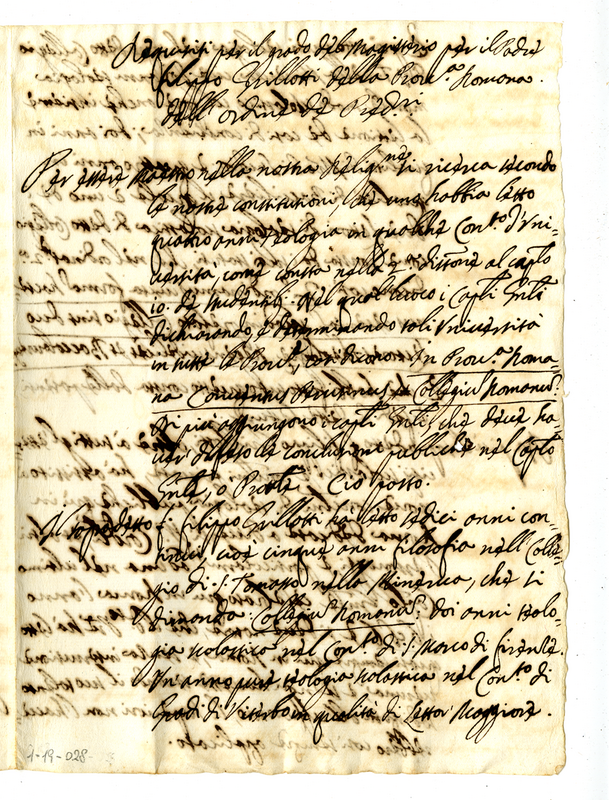 Requisiti per il grado del Magisterio per il Padre
Filippo Grillotti della Prov.a Romana
dell'ordine de Pred.ri
Per essere Maestro nella nostra Relig.ne si ricerca secondo
le nostre constitutioni, che uno habbia letto
quattro anni Teologia in qualche Con.to d'Uni-
versità, come consta nella 2.a distione al cap.lo
10. de studentib. Nel qual luoco i Cap.li Gnli
dichiarando, e determinando tali Università
in tutte le Prov.e, così dicono: In Prov.a Roma-
na Conventus et Collegiũ Romanũ.
Di più aggiungono i cap.li Gnli, che deve ha-
ver difeso le conclusioni publiche nel Cap.lo
Gnle, o Prõle. Ciò posto.
Il sopradetto f. Filippo Grillotti ha letto sedici anni con-
tinui, cioè cinque anni filosofia nell Colle-
gio di S. Tomasso nella Minerva, che si
dimanda Collegiũ Romanũ. Doi anni teolo-
gia scolastica nel Con.to di S. Marco di Firenze.
Un anno pure teologia scolastica nel Con.to di
Gradi di Viterbo in qualità di Lettor Maggiore.
1-19-028-